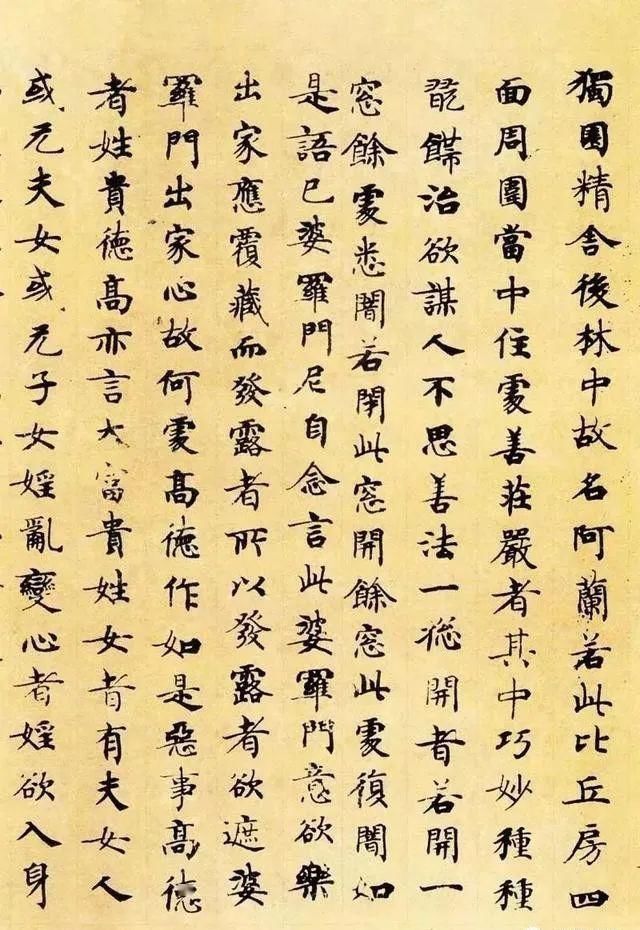 獨園精舍後林中故名阿蘭若此比丘房四
面周圍當中住處善莊嚴者其中巧妙種種
治欲謀人不思善法一窓開者若開一
窓餘處悉闇若閉此窓開餘窓此處復闇如
是語已婆羅門尼自念言此婆羅門意欲樂
出家應覆藏而發露者所以發露者欲遮婆
羅門出家心故何處高德作如是惡事高德
者姓貴德高亦言大富貴姓女者有夫女人
或无夫女或无子女婬亂變心者婬欲入身